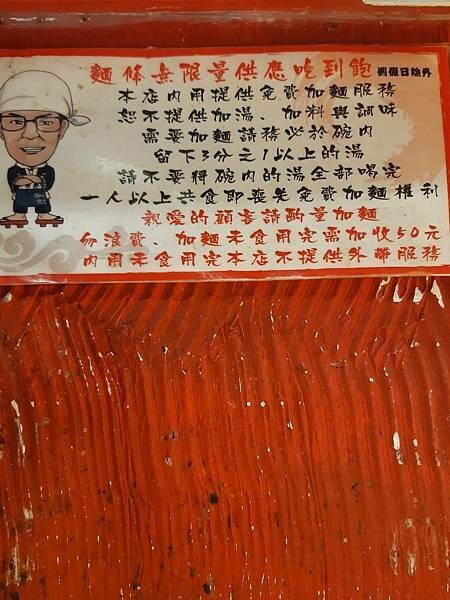 麵條無限量供應吃到飽 例假日除外
本店內用提供免費加麵服務
恕不提供加湯、加料與調味
需要加麵請務必於碗內
留下3分之1以上的湯
請不要將碗內的湯全部喝完
一人以上共食即喪失免費加麵權利
親愛的顧客請酌量加麵
勿浪費、加麵未食用完需加收50元
內用未食用完本店不提供外帶服務